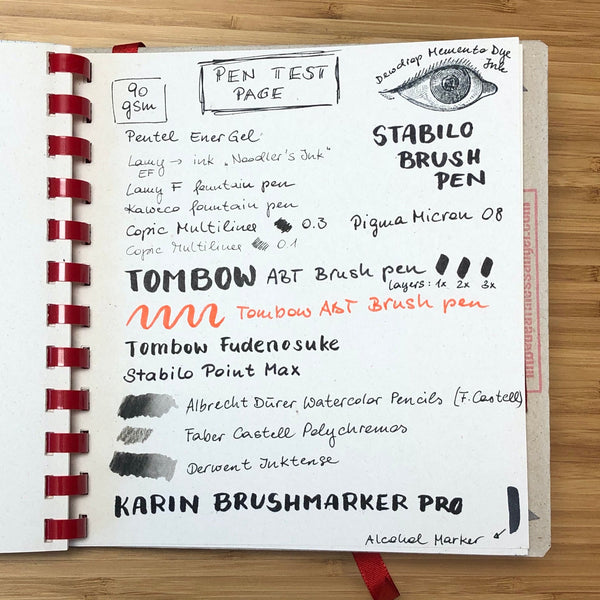 PEN TEST
PAGE
90
gsm
Dewdrop Memento Dye
Ink
STABILO
BRUSH
PEN
Pentel EnerGel
Lamy → ink „Noodler's Ink"
EF
Lamy F fountain pen
Kaweco fountain pen
Copic Multiliner 0.3 Pigma Micron 08
Copic Multiliner 0.1
TOMBOW ABT Brush pen
layers: 1x 2x 3x
Tombow ABT Brush pen
Tombow Fudenosuke
Stabilo Point Max
Albrecht Dürer Watercolor Pencils (F. Castell)
Faber Castell Polychromos
Derwent Inktense
KARIN BRUSHMARKER PRO
Alcohol Marker